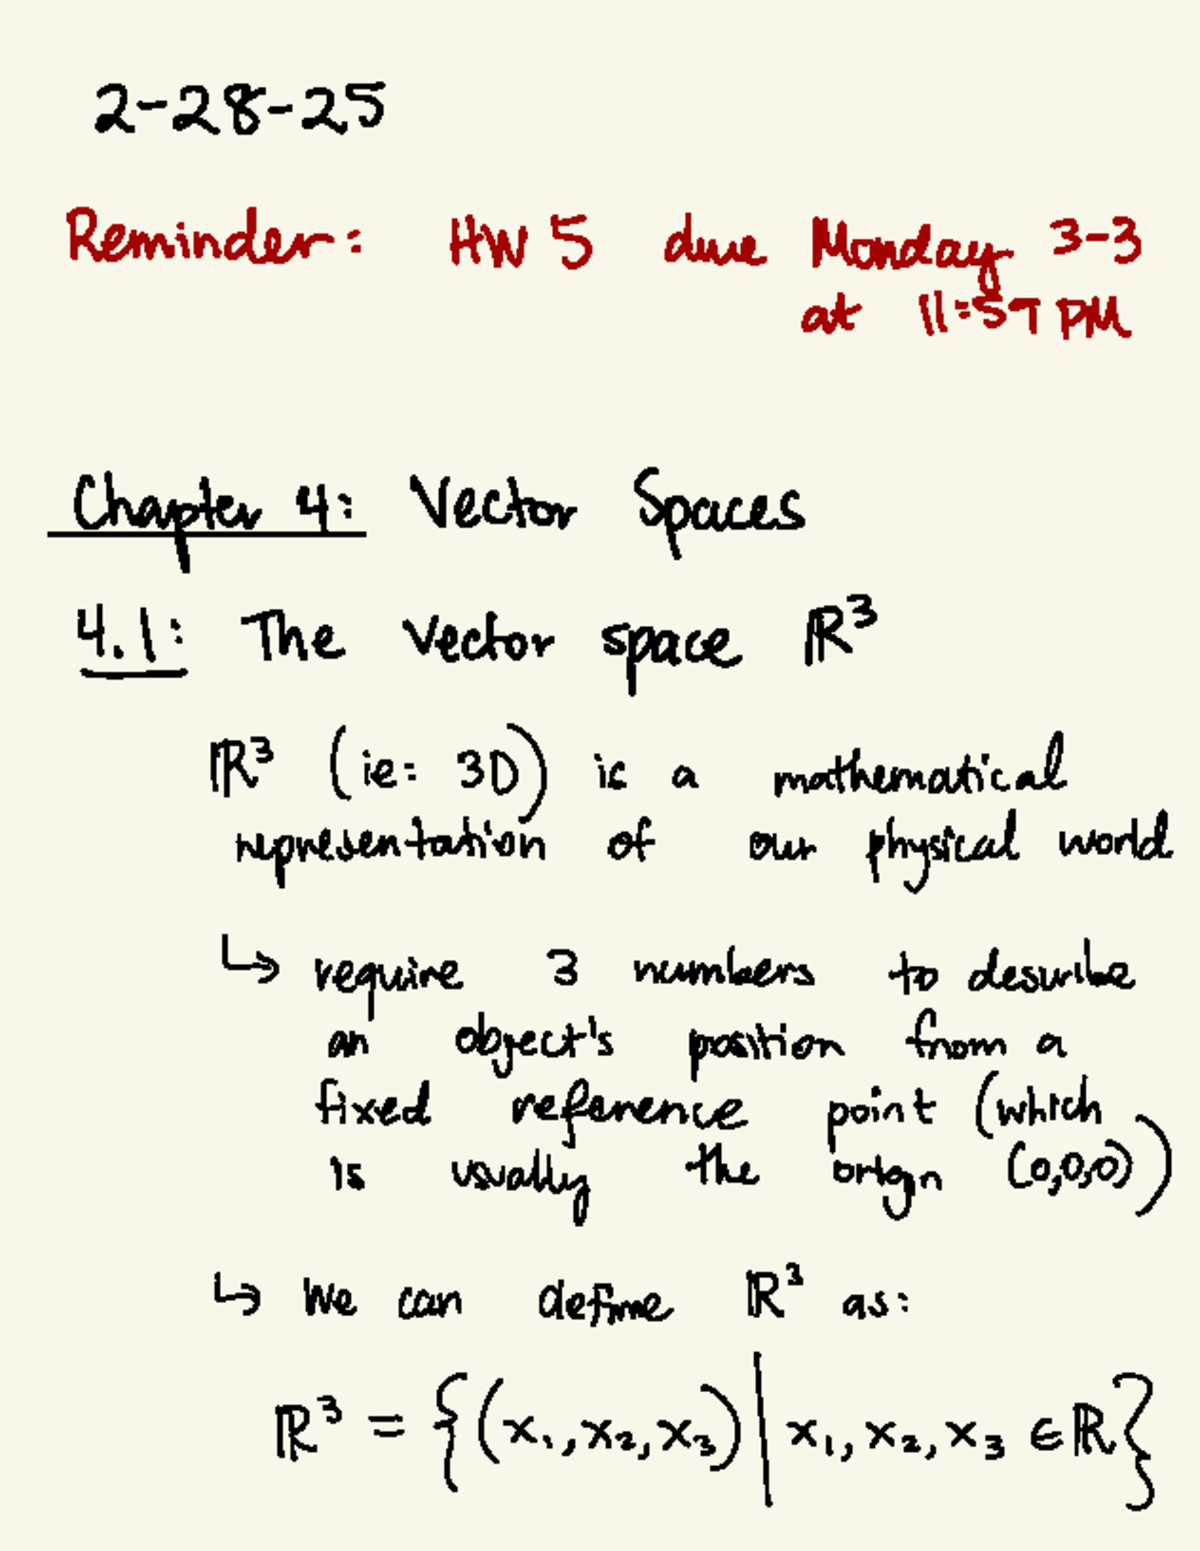 2-28-25
Reminder: HW 5 due Monday 3-3
at 11:59 PM
Chapter 4: Vector Spaces
4.1: The vector space ℝ³
ℝ³ (ie: 3D) is a mathematical
representation of our physical world
↳ require 3 numbers to describe
an object's position from a
fixed reference point (which
is usually the origin (0,0,0))
↳ We can define ℝ³ as:
ℝ³ = {(x₁, x₂, x₃) | x₁, x₂, x₃ ∈ ℝ}